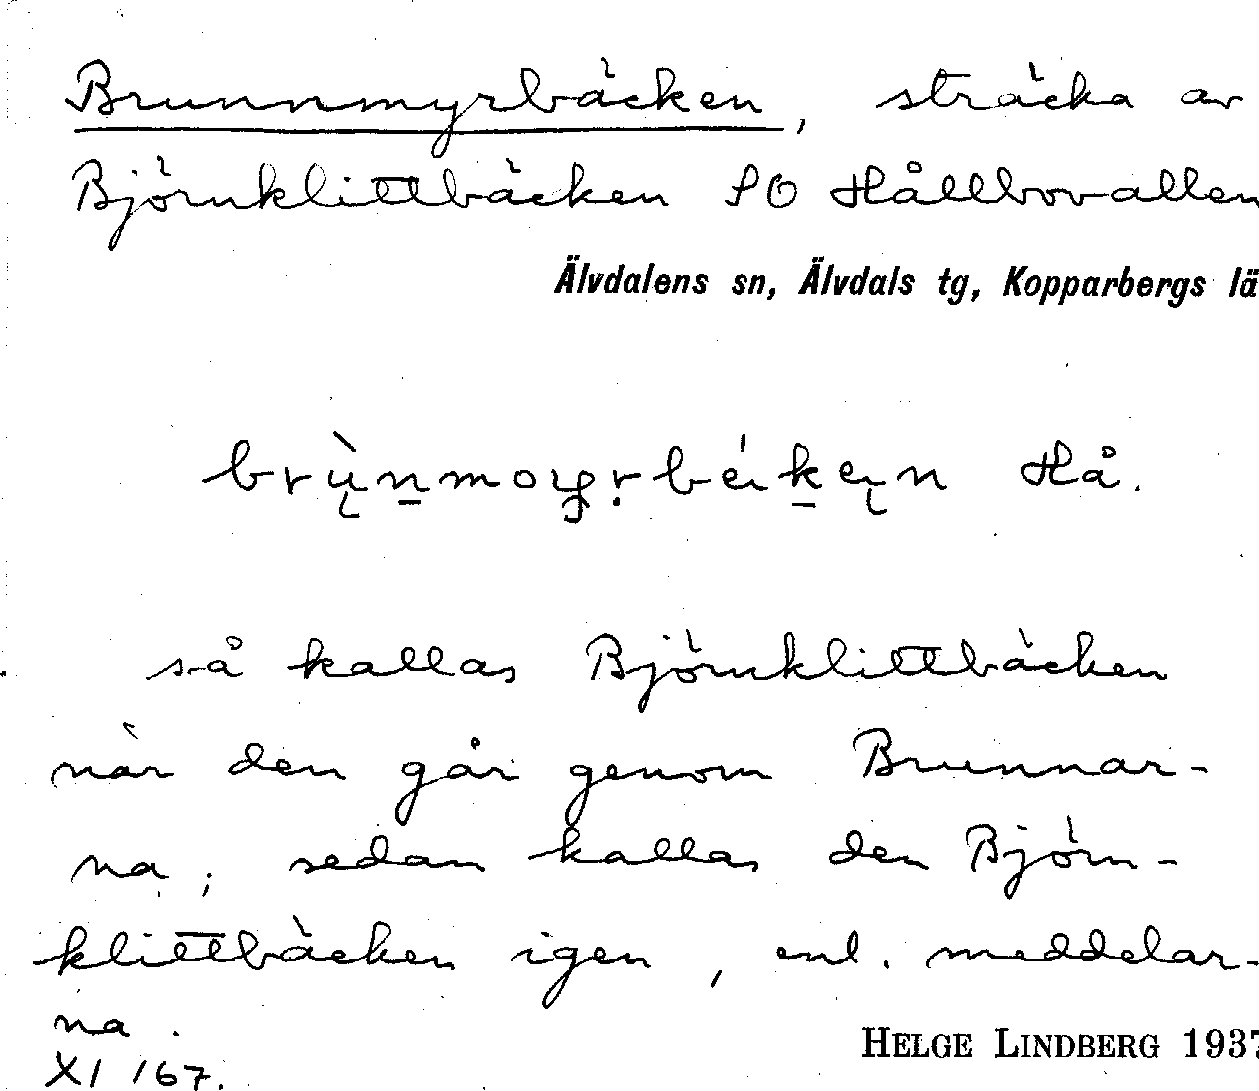 Brunnmyrbäcken, sträcka av
Björnklittbäcken SO Hållbovallen
Älvdalens sn, Älvdals tg, Kopparbergs lä
Hå.
så kallas Björnklittbäcken
när den går genom Brunnar-
na, sedan kallas den Björn-
klittbäcken igen, enl. meddelar-
na.
XI 167.
HELGE LINDBERG 1937